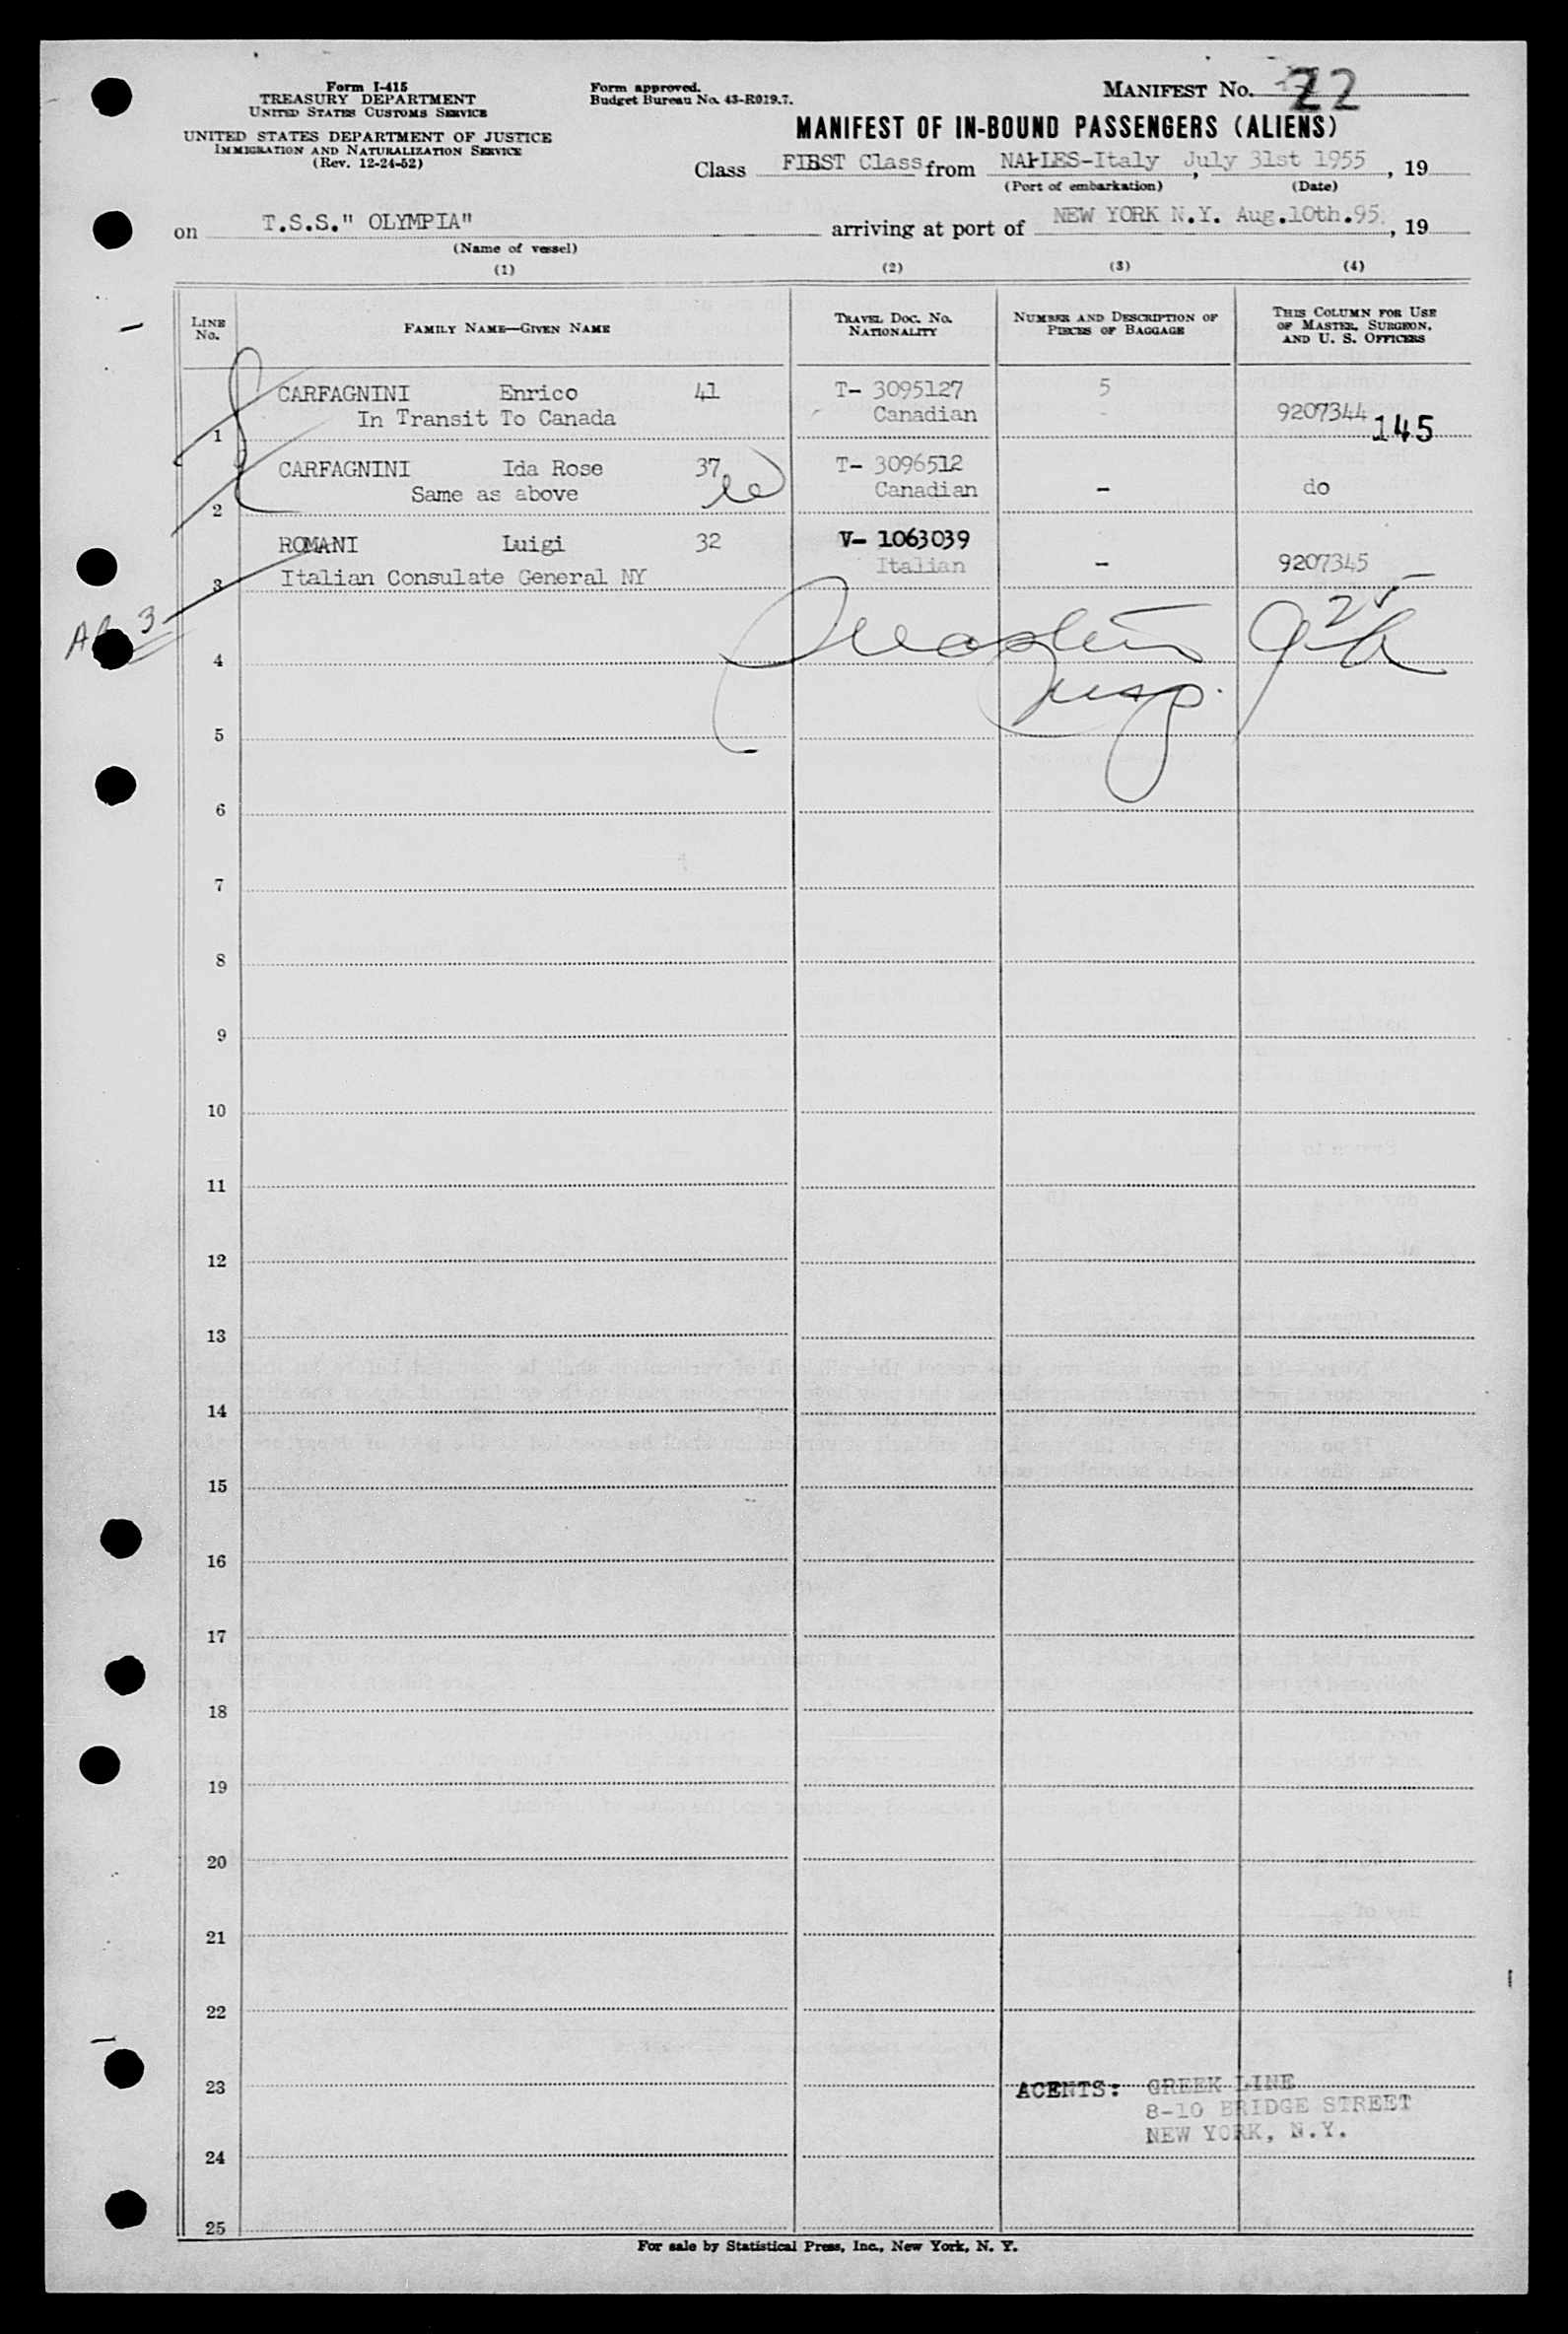 Form I-415
TREASURY DEPARTMENT
UNITED STATES CUSTOMS SERVICE
UNITED STATES DEPARTMENT OF JUSTICE
IMMIGRATION AND NATURALIZATION SERVICE
(Rev. 12-24-52)
Form approved.
Budget Bureau No. 43-R019.7.
MANIFEST No. 22
MANIFEST OF IN-BOUND PASSENGERS (ALIENS)
Class FIRST Class from NAPLES-Italy, July 31st 1955, 19
(Port of embarkation) (Date)
on T.S.S." OLYMPIA" arriving at port of NEW YORK N.Y. Aug.10th.95, 19
(Name of vessel)
(1) (2) (3) (4)
LINE No. FAMILY NAME—GIVEN NAME TRAVEL DOC. No. NATIONALITY NUMBER AND DESCRIPTION OF PIECES OF BAGGAGE THIS COLUMN FOR USE OF MASTER, SURGEON, AND U. S. OFFICERS
CARFAGNINI Enrico 41 T- 3095127 5
1 In Transit To Canada Canadian - 9207344 145
CARFAGNINI Ida Rose 37 T- 3096512
2 Same as above Canadian - do
ROMANI Luigi 32 V- 1063039
3 Italian Consulate General NY Italian - 9207345
3
4
Insp.
5
6
7
8
9
10
11
12
13
14
15
16
17
18
19
20
21
22
23 AGENTS: GREEK LINE
8-10 BRIDGE STREET
NEW YORK, N.Y.
24
25
For sale by Statistical Press, Inc., New York, N. Y.